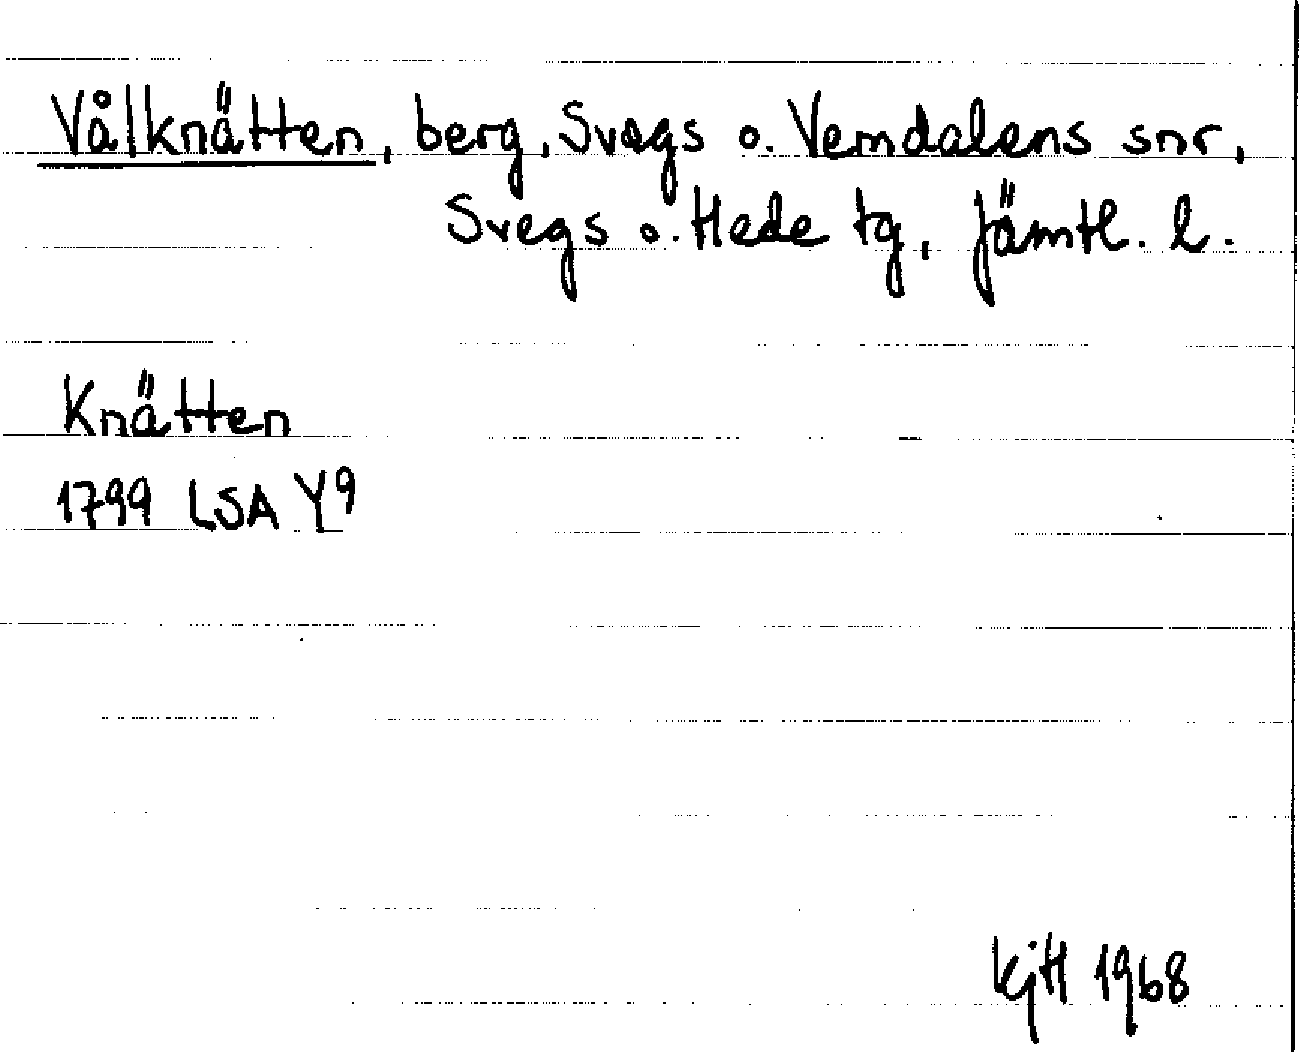 Vålknätten, berg, Svegs o. Vemdalens snr,
Svegs o. Hede tg, Jämtl. l.
Knätten
1799 LSA Y9
KjH 1968